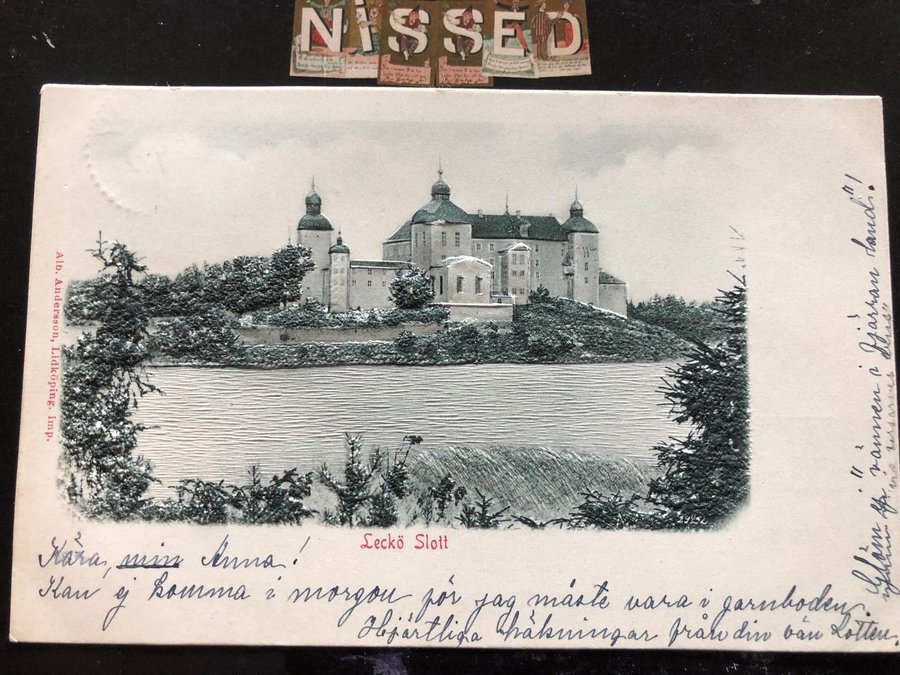 NISSED
Alb. Andersson, Lidköping. imp.
Leckö Slott
Kära, min Anna!
Kan ej komma i morgon för jag måste vara i garnboden.
Hjärtliga hälsningar från din vän Lotten.
Glöm ej "vännen i fjärran land"!